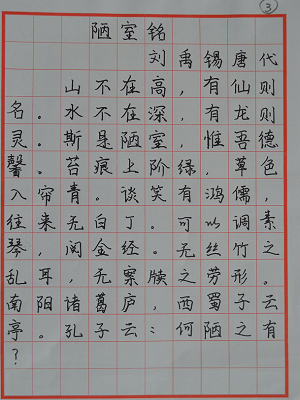 ③
陋室铭
刘禹锡唐代
山不在高，有仙则
名。水不在深，有龙则
灵。斯是陋室，惟吾德
馨。苔痕上阶绿，草色
入帘青。谈笑有鸿儒，
往来无白丁。可以调素
琴，阅金经。无丝竹之
乱耳，无案牍之劳形。
南阳诸葛庐，西蜀子云
亭。孔子云：何陋之有
？